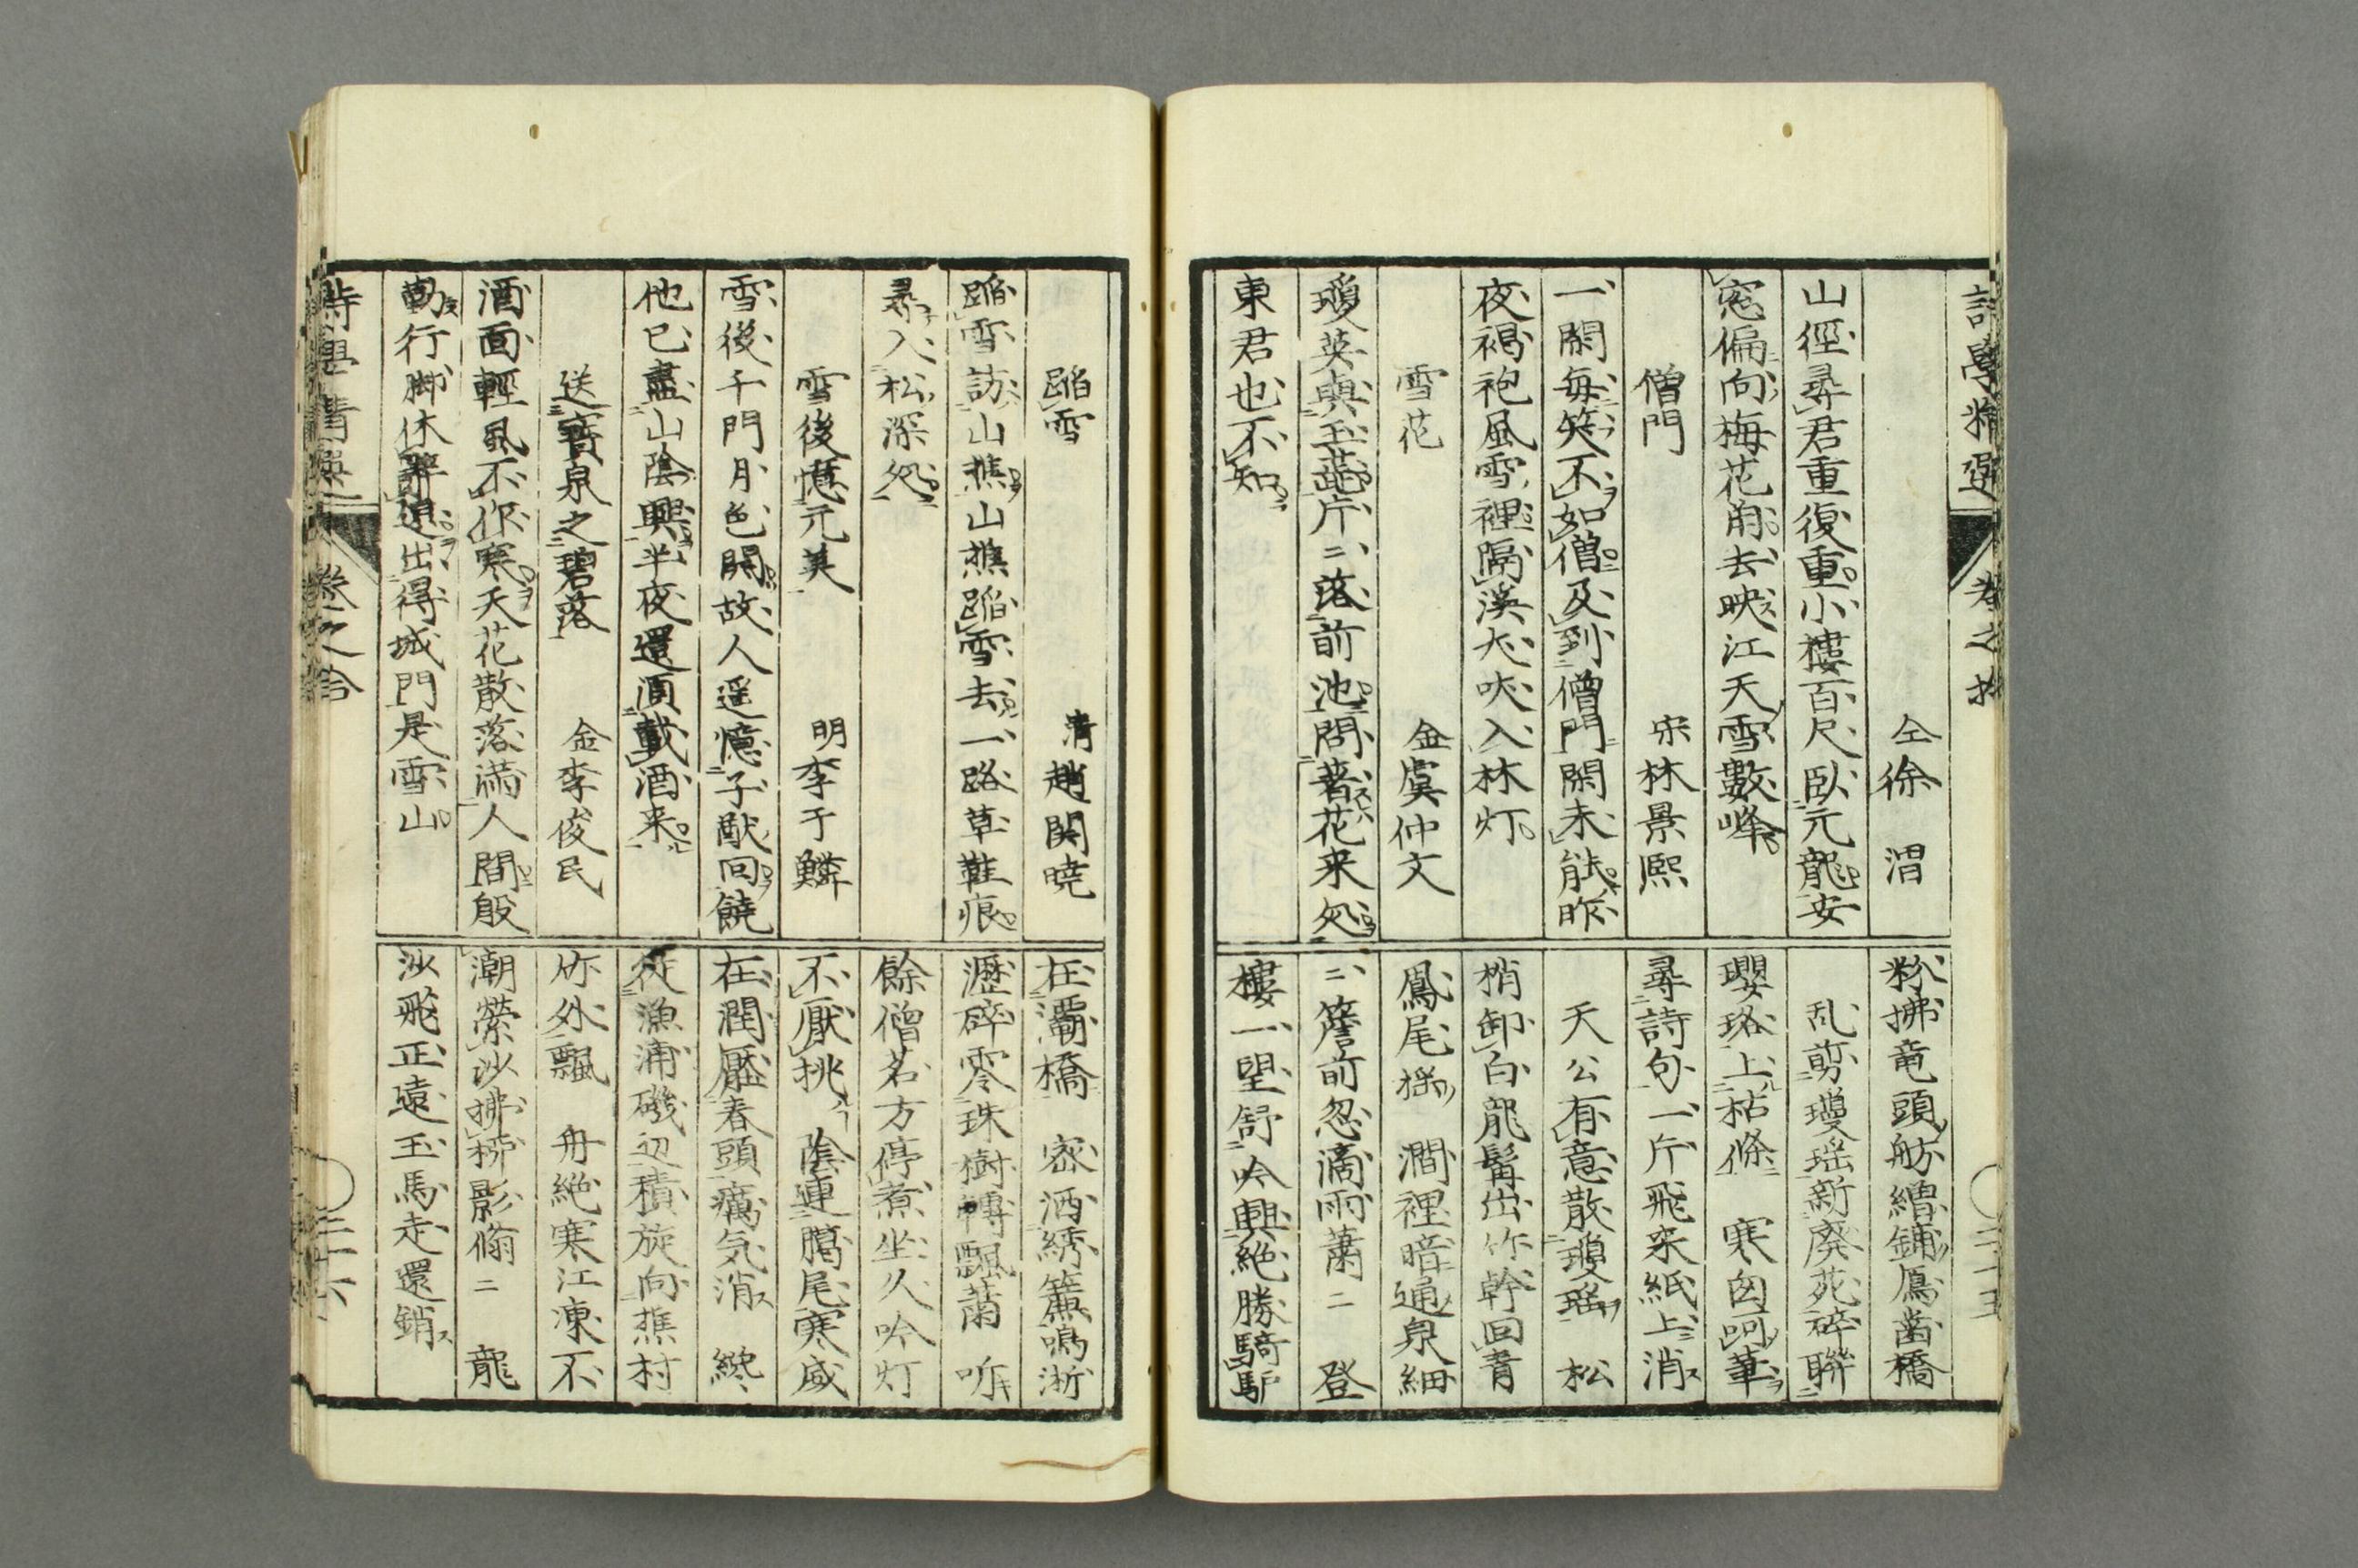 仝徐　渭
山徑尋君重復重小樓百尺臥元龍安
窓偏向梅花開去映江天雪數峰
僧門　宋林景熙
一閑每笑不如僧及到僧門閑未能昨
夜褐袍風雪裡隔溪犬吠入林灯
雪花　金虞仲文
瓊英與玉蘂片二落前池問著花来処
東君也不知
粉拂竜頭舫繒鋪鳫齒橋
乱剪瓊瑶新廃苑碎聯
瓔珞上枯條　寒窓呵筆
尋詩句一片飛来紙上消
天公有意散瓊瑶　松
梢卸白龍髯出竹幹回青
鳳尾揺　澗裡暗通泉細
二簷前忽滴雨蕭二　登
樓一望舒吟興絶勝騎馿
蹈雪　清趙関暁
蹈雪訪山樵山樵蹈雪去一路草鞋痕
尋入松深処
雪後憶元美　明李于鱗
雪後千門月色開故人遥憶子猷回饒
他已盡山陰興半夜還須載酒来
送寳泉之碧落　金李俊民
酒面輕風不作寒天花散落满人間般
勤行脚休辭遠出得城門是雪山
在灞橋　密洒綉簾鳴淅
瀝碎零珠樹轉飄蕭　听
餘僧茗方停煮坐久吟灯
不厭挑　陰連臈尾寒威
在潤壓春頭癘気消　纔
從漁浦磯辺積旋向樵村
竹外飄　舟絶寒江凍不
潮縈沙拂栁影翛二　龍
沙飛正遠玉馬走還銷
卷之合　二十六